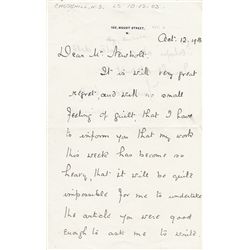 CHURCHILL, W.S. LS 10.12.02.
105, MOUNT STREET,
W.
Oct. 12. 19
Dear Mr Newbolt.
It is with very great
regret and with no small
feeling of guilt that I have
to inform you that my work
this week has become so
heavy, that it will be quite
impossible for me to undertake
the article you were good
enough to ask me to write.